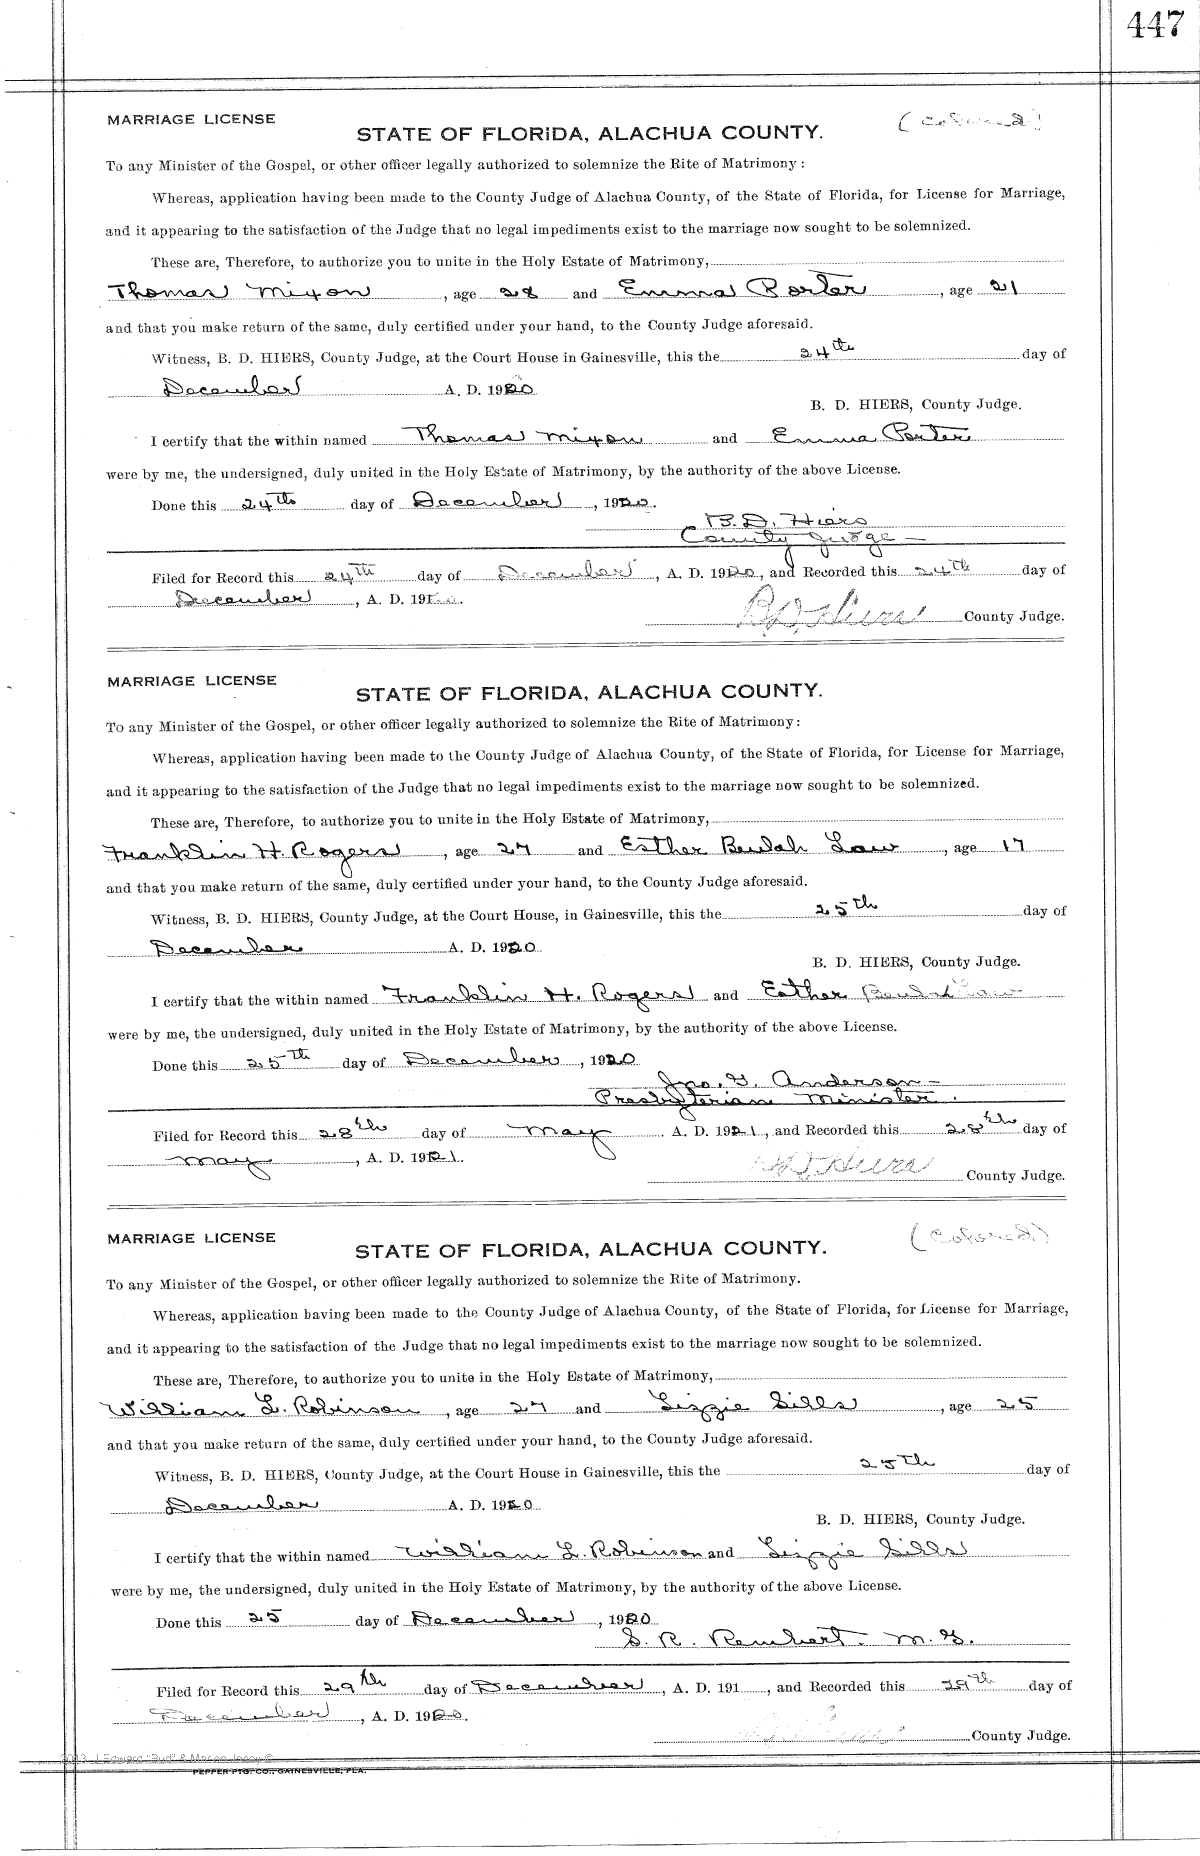 447
MARRIAGE LICENSE
(Colored)
STATE OF FLORIDA, ALACHUA COUNTY.
To any Minister of the Gospel, or other officer legally authorized to solemnize the Rite of Matrimony:
Whereas, application having been made to the County Judge of Alachua County, of the State of Florida, for License for Marriage,
and it appearing to the satisfaction of the Judge that no legal impediments exist to the marriage now sought to be solemnized.
These are, Therefore, to authorize you to unite in the Holy Estate of Matrimony,
Thomas Mixon, age 28 and Emma Porter, age 21
and that you make return of the same, duly certified under your hand, to the County Judge aforesaid.
Witness, B. D. HIERS, County Judge, at the Court House in Gainesville, this the 24th day of
December A. D. 1920
B. D. HIERS, County Judge.
I certify that the within named Thomas Mixon and Emma Porter
were by me, the undersigned, duly united in the Holy Estate of Matrimony, by the authority of the above License.
Done this 24th day of December, 1920.
B. D. Hiers
County Judge—
Filed for Record this 24th day of December, A. D. 1920, and Recorded this 24th day of
December, A. D. 1920.
B. D. Hiers County Judge.
MARRIAGE LICENSE
STATE OF FLORIDA, ALACHUA COUNTY.
To any Minister of the Gospel, or other officer legally authorized to solemnize the Rite of Matrimony:
Whereas, application having been made to the County Judge of Alachua County, of the State of Florida, for License for Marriage,
and it appearing to the satisfaction of the Judge that no legal impediments exist to the marriage now sought to be solemnized.
These are, Therefore, to authorize you to unite in the Holy Estate of Matrimony,
Franklin H. Rogers, age 27 and Esther Beulah Law, age 17
and that you make return of the same, duly certified under your hand, to the County Judge aforesaid.
Witness, B. D. HIERS, County Judge, at the Court House, in Gainesville, this the 25th day of
December A. D. 1920
B. D. HIERS, County Judge.
I certify that the within named Franklin H. Rogers and Esther Beulah Law
were by me, the undersigned, duly united in the Holy Estate of Matrimony, by the authority of the above License.
Done this 25th day of December, 1920
Jno. G. Anderson—
Presbyterian Minister.
Filed for Record this 28th day of May A. D. 1921, and Recorded this 28th day of
May, A. D. 1921.
B. D. Hiers County Judge.
MARRIAGE LICENSE
(Colored.)
STATE OF FLORIDA, ALACHUA COUNTY.
To any Minister of the Gospel, or other officer legally authorized to solemnize the Rite of Matrimony.
Whereas, application having been made to the County Judge of Alachua County, of the State of Florida, for License for Marriage,
and it appearing to the satisfaction of the Judge that no legal impediments exist to the marriage now sought to be solemnized.
These are, Therefore, to authorize you to unite in the Holy Estate of Matrimony,
William L. Robinson, age 27 and Lizzie Sills, age 25
and that you make return of the same, duly certified under your hand, to the County Judge aforesaid.
Witness, B. D. HIERS, County Judge, at the Court House in Gainesville, this the 25th day of
December A. D. 1920
B. D. HIERS, County Judge.
I certify that the within named William L. Robinson and Lizzie Sills
were by me, the undersigned, duly united in the Holy Estate of Matrimony, by the authority of the above License.
Done this 25 day of December, 1920
S. R. Rembert. M. G.
Filed for Record this 29th day of December, A. D. 191 , and Recorded this 29th day of
December, A. D. 1920.
County Judge.
PEPPER PTG. CO., GAINESVILLE, FLA.